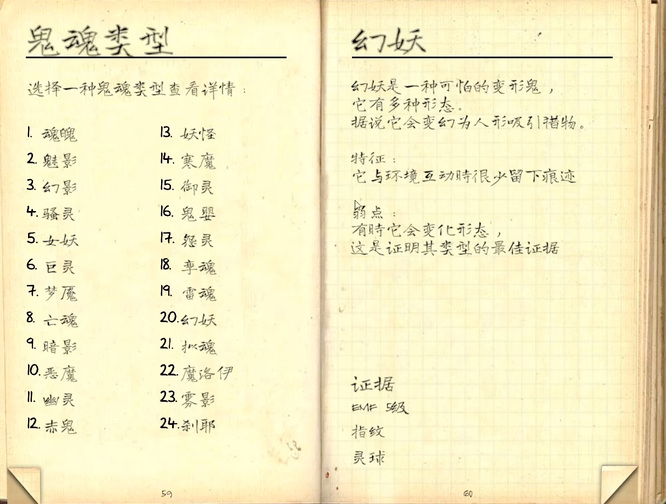 鬼魂类型
选择一种鬼魂类型查看详情：
1. 魂魄
2. 魅影
3. 幻影
4. 骚灵
5. 女妖
6. 巨灵
7. 梦魇
8. 亡魂
9. 暗影
10. 恶魔
11. 幽灵
12. 赤鬼
13. 妖怪
14. 寒魔
15. 御灵
16. 鬼婴
17. 怨灵
18. 孪魂
19. 雷魂
20. 幻妖
21. 拟魂
22. 魔洛伊
23. 雾影
24. 刹耶
59
幻妖
幻妖是一种可怕的变形鬼，
它有多种形态。
据说它会变幻为人形吸引猎物。
特征：
它与环境互动时很少留下痕迹
弱点：
有时它会变化形态，
这是证明其类型的最佳证据
证据
EMF 5级
指纹
灵球
60